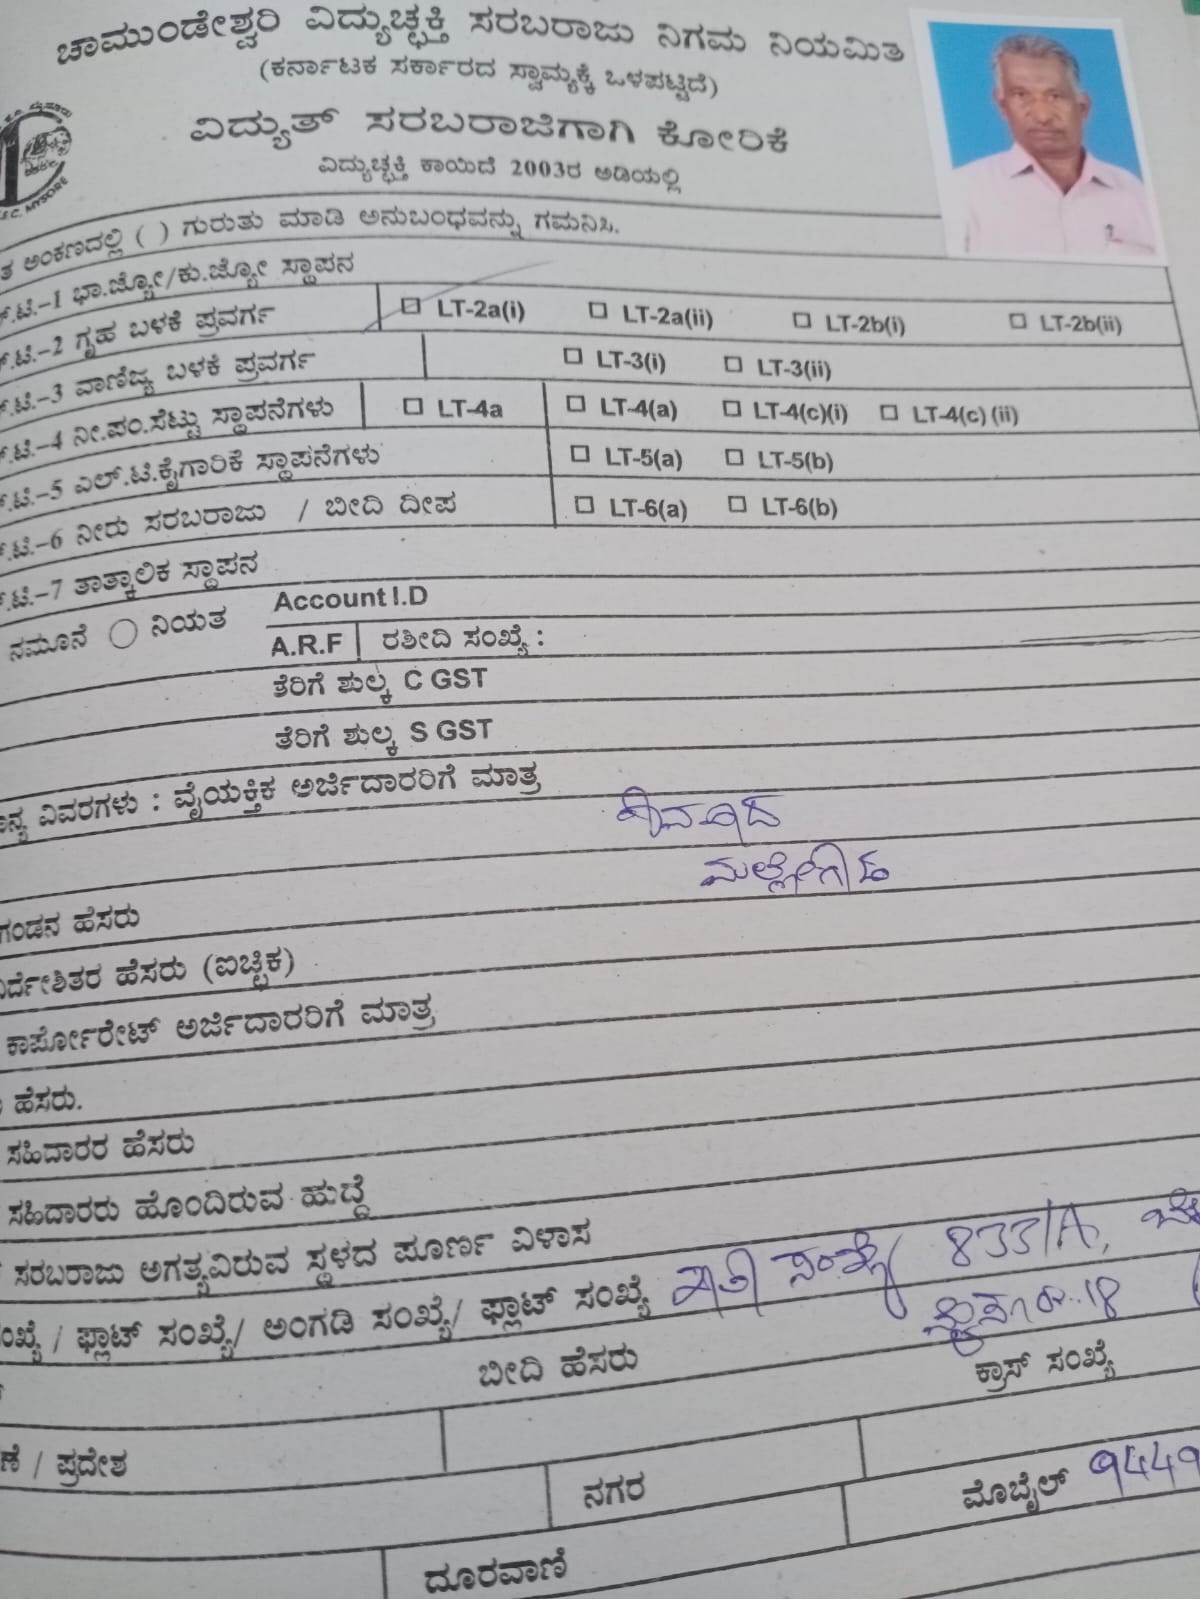 ಚಾಮುಂಡೇಶ್ವರಿ ವಿದ್ಯುಚ್ಛಕ್ತಿ ಸರಬರಾಜು ನಿಗಮ ನಿಯಮಿತ
(ಕರ್ನಾಟಕ ಸರ್ಕಾರದ ಸ್ವಾಮ್ಯಕ್ಕೆ ಒಳಪಟ್ಟಿದೆ)
ವಿದ್ಯುತ್ ಸರಬರಾಜಿಗಾಗಿ ಕೋರಿಕೆ
ವಿದ್ಯುಚ್ಛಕ್ತಿ ಕಾಯಿದೆ 2003ರ ಅಡಿಯಲ್ಲಿ
MYSORE
ತ ಅಂಕಣದಲ್ಲಿ ( ) ಗುರುತು ಮಾಡಿ ಅನುಬಂಧವನ್ನು ಗಮನಿಸಿ.
.ಟಿ.-1 ಭಾ.ಜ್ಯೋ/ಕು.ಜ್ಯೋ ಸ್ಥಾಪನ
.ಟಿ.-2 ಗೃಹ ಬಳಕೆ ಪ್ರವರ್ಗ LT-2a(i) LT-2a(ii) LT-2b(i) LT-2b(ii)
.ಟಿ.-3 ವಾಣಿಜ್ಯ ಬಳಕೆ ಪ್ರವರ್ಗ LT-3(i) LT-3(ii)
.ಟಿ.-4 ನೀ.ಪಂ.ಸೆಟ್ಟು ಸ್ಥಾಪನೆಗಳು LT-4a LT-4(a) LT-4(c)(i) LT-4(c) (ii)
.ಟಿ.-5 ಎಲ್.ಟಿ.ಕೈಗಾರಿಕೆ ಸ್ಥಾಪನೆಗಳು LT-5(a) LT-5(b)
.ಟಿ.-6 ನೀರು ಸರಬರಾಜು / ಬೀದಿ ದೀಪ LT-6(a) LT-6(b)
.ಟಿ.-7 ತಾತ್ಕಾಲಿಕ ಸ್ಥಾಪನ
ನಮೂನೆ ನಿಯತ Account I.D
A.R.F ರಶೀದಿ ಸಂಖ್ಯೆ :
ತೆರಿಗೆ ಶುಲ್ಕ C GST
ತೆರಿಗೆ ಶುಲ್ಕ S GST
ನ್ಯ ವಿವರಗಳು : ವೈಯಕ್ತಿಕ ಅರ್ಜಿದಾರರಿಗೆ ಮಾತ್ರ
ಗಂಡನ ಹೆಸರು
ರ್ದೇಶಿತರ ಹೆಸರು (ಐಚ್ಛಿಕ)
ಕಾರ್ಪೋರೇಟ್ ಅರ್ಜಿದಾರರಿಗೆ ಮಾತ್ರ
ಹೆಸರು.
ಸಹಿದಾರರ ಹೆಸರು
ಸಹಿದಾರರು ಹೊಂದಿರುವ ಹುದ್ದೆ
ಸರಬರಾಜು ಅಗತ್ಯವಿರುವ ಸ್ಥಳದ ಪೂರ್ಣ ವಿಳಾಸ
ಂಖ್ಯೆ / ಫ್ಲಾಟ್ ಸಂಖ್ಯೆ/ ಅಂಗಡಿ ಸಂಖ್ಯೆ/ ಫ್ಲಾಟ್ ಸಂಖ್ಯೆ ಸಂಖ್ಯೆ 833/A,
ಬೀದಿ ಹೆಸರು ಕ್ರಾಸ್ ಸಂಖ್ಯೆ
ಣೆ / ಪ್ರದೇಶ
ನಗರ ಮೊಬೈಲ್ 9449
ದೂರವಾಣಿ